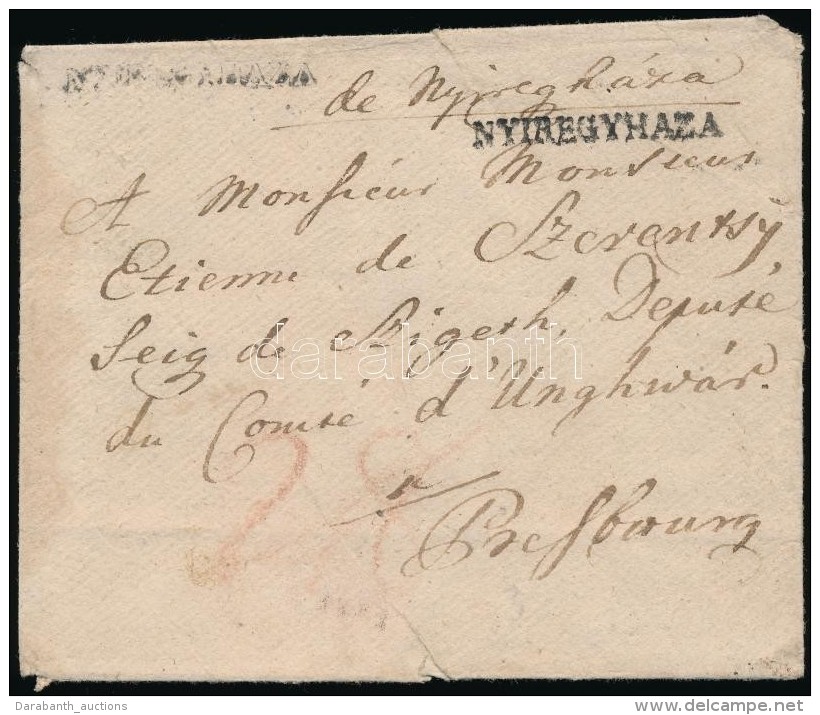 NYIREGYHAZA
de Nyiregháza
NYIREGYHAZA
A Monsieur Monsieur
Etienne de Szerentsÿ
Seig de Szigeth, Deputé
du Comté d'Unghwár.
darabanth
à
Presbourg
Darabanth_auctions
www.delcampe.net